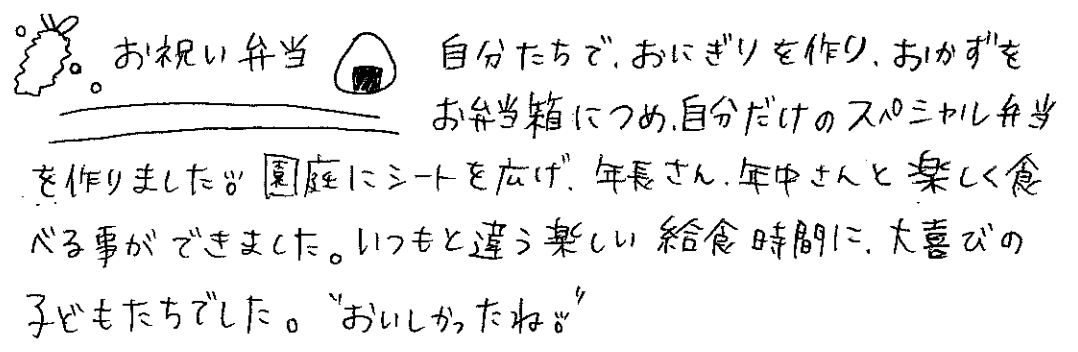 お祝い弁当 自分たちで、おにぎりを作り、おかずを
お弁当箱につめ、自分だけのスペシャル弁当
を作りました!! 園庭にシートを広げ、年長さん、年中さんと楽しく食
べる事ができました。いつもと違う楽しい給食時間に、大喜びの
子どもたちでした。"おいしかったね!!"